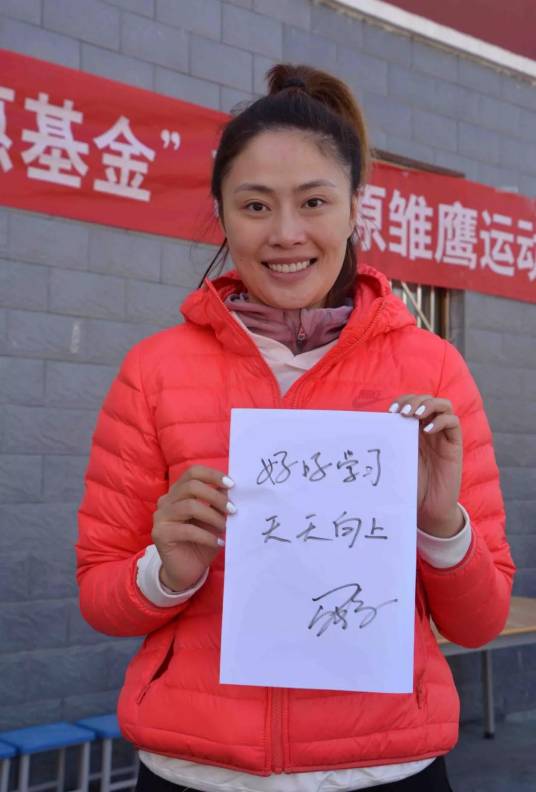 基金”
原雏鹰运动
好好学习
天天向上